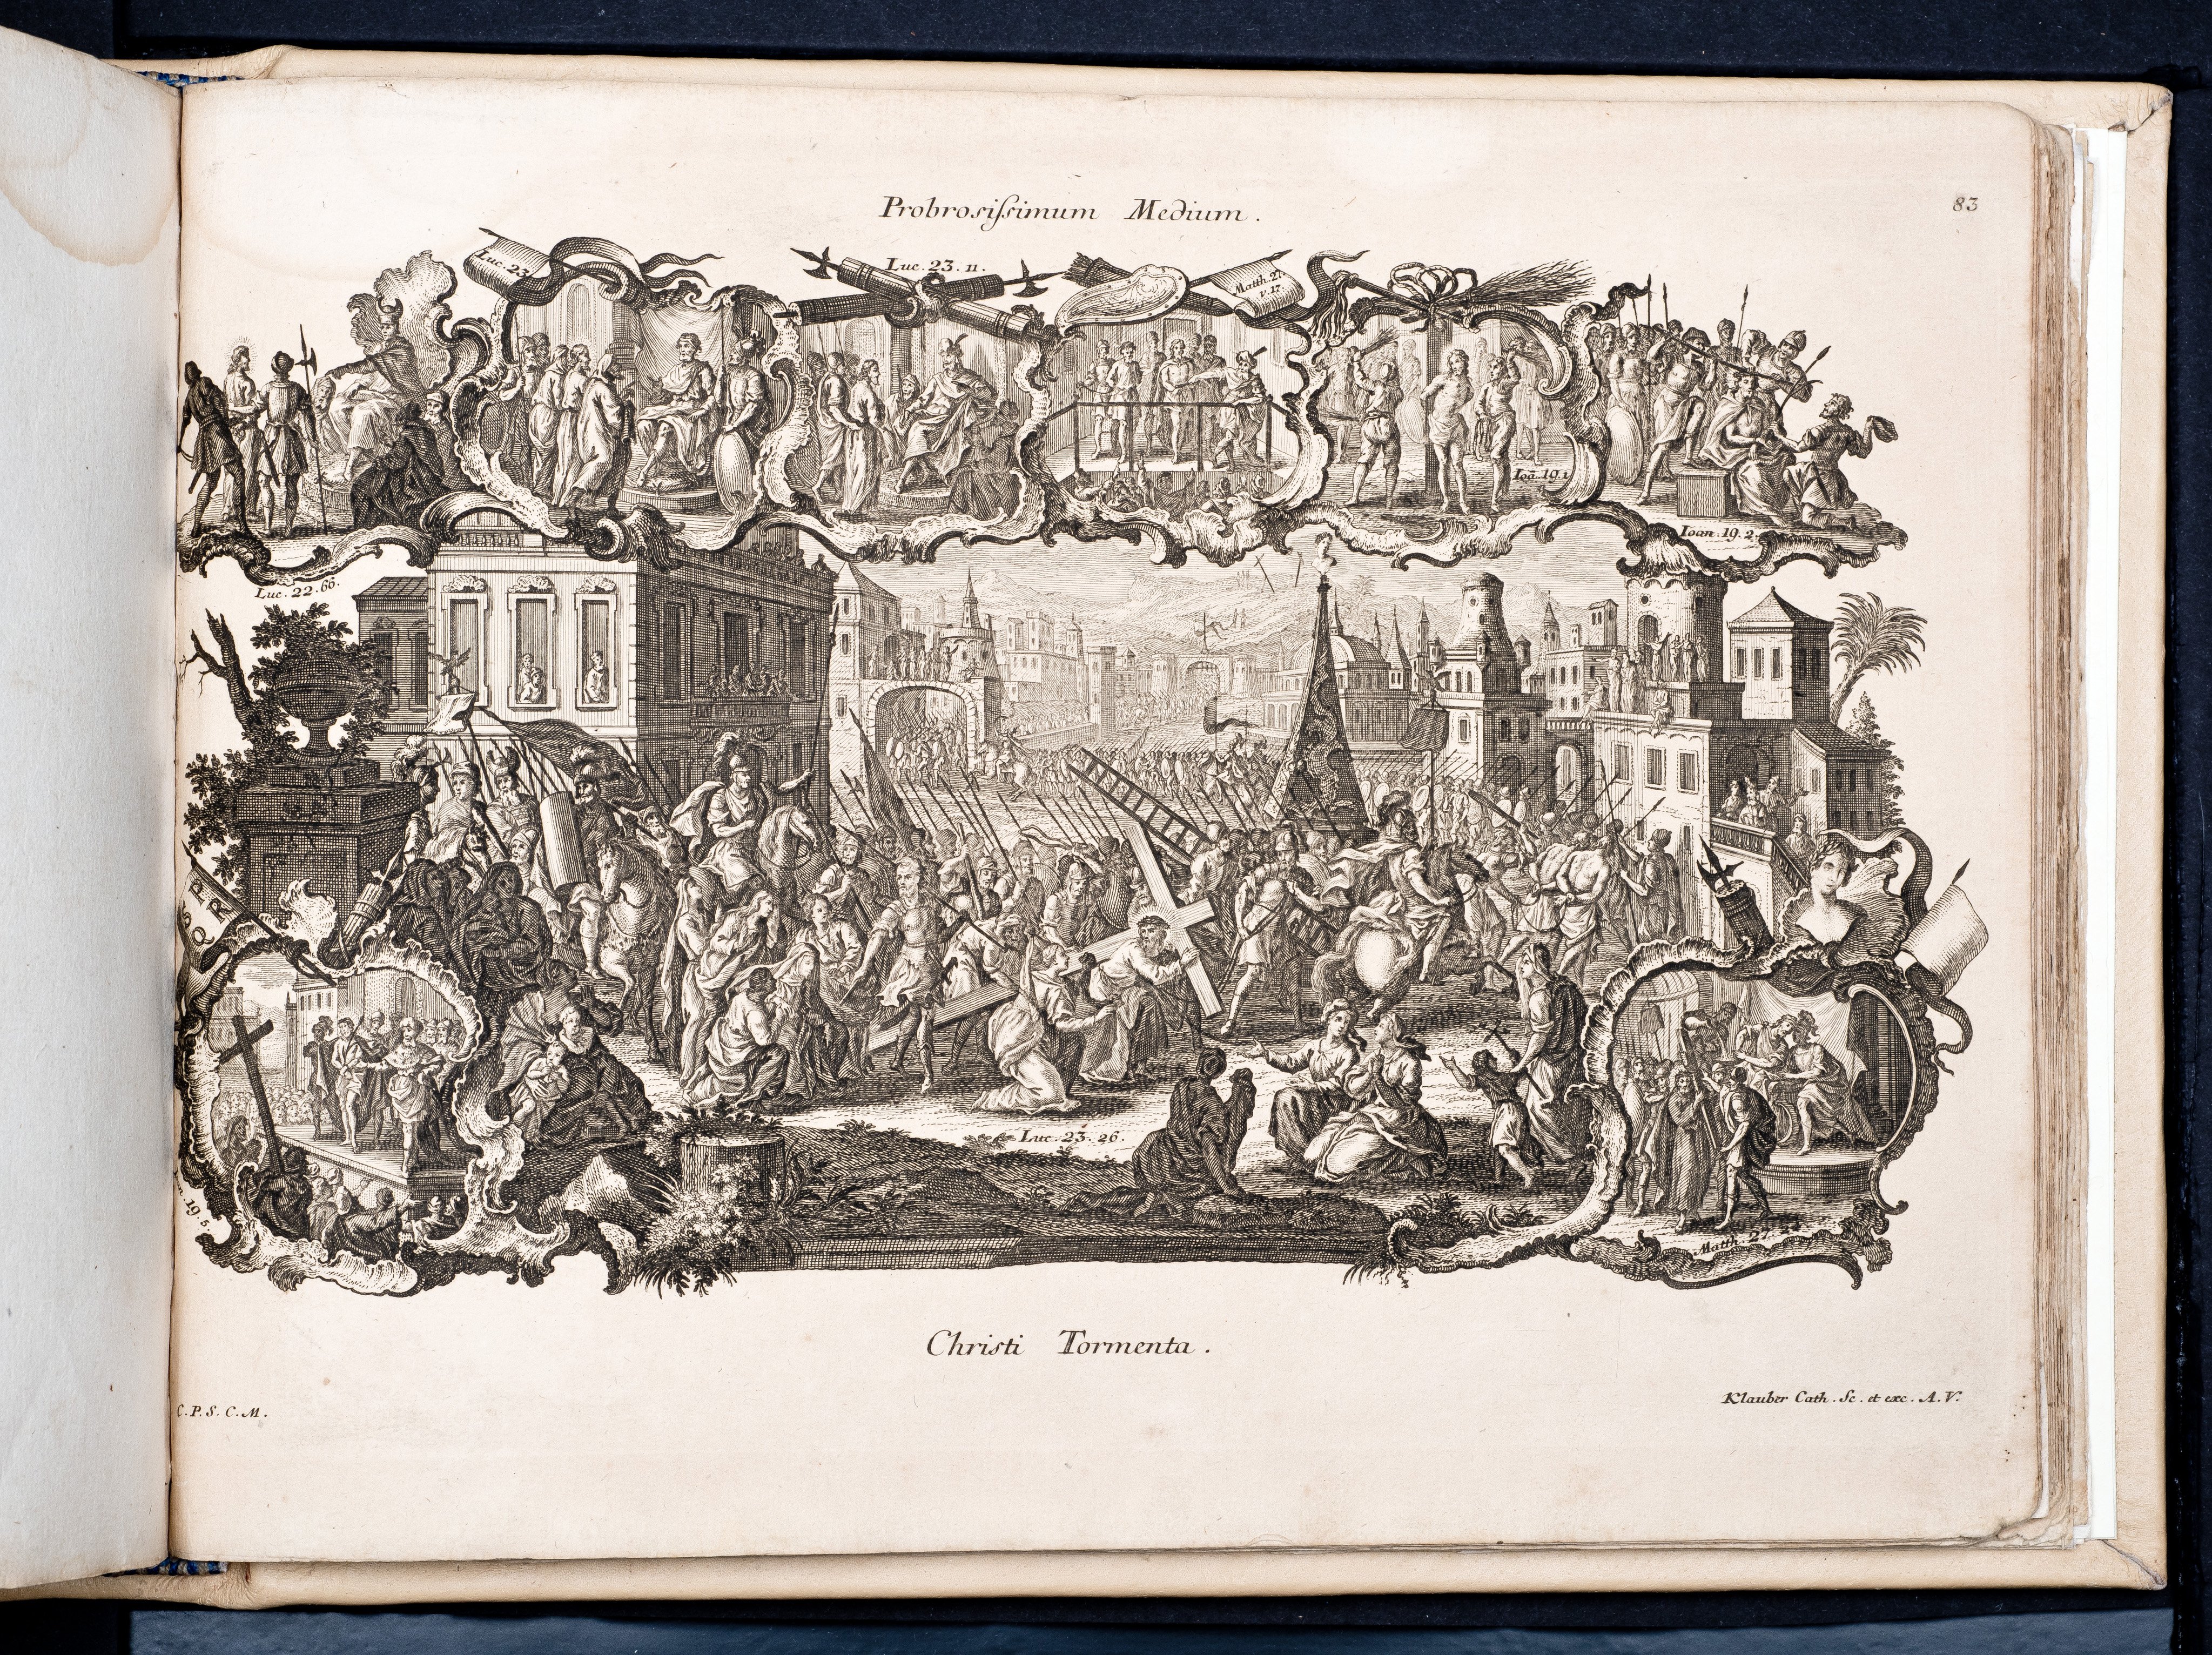 Probrosissimum Medium.
83
Luc. 23.
Luc. 23. 11.
Matth. 27.
v. 17.
Ioã. 19. 1
Ioan. 19. 2.
Luc. 22. 66.
S P
Q R
Luc. 23. 26.
n. 19. 5.
Matth. 27.
Christi Tormenta.
C. P. S. C. M.
Klauber Cath. Sc. et exc. A. V.